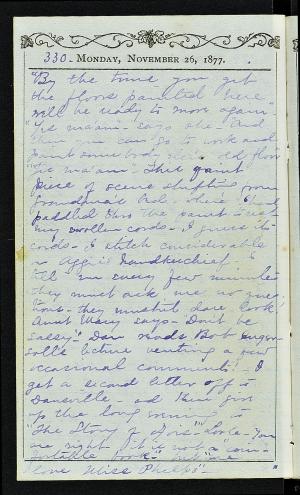 330. MONDAY, NOVEMBER 26, 1877.
"By the time you get
the floors painted here
will be ready to move again"
"yes ma'am" says she. And
then you can go to work and
paint somebody else's old floor
"yes ma'am". That quaint
piece of scene shifting from
grandma's
paddled thro the paint to rest
my swollen cords - I guess its
cords - I stitch considerable
on Aggie's handkerchief. I
tell em every few minutes
they must ask me no ques-
tions - they mustn't dare look
Aunt Mary says - "Don't be
sassy". Dan reads Bob Inger-
solls lecture venting a few
occasional comments. I
get a second letter off to
Dansville - and then give
up the long evening to
"The Story of Avis" - Lovely. You
are right it is not a "com-
fortable book" but we
love Miss Phelps"